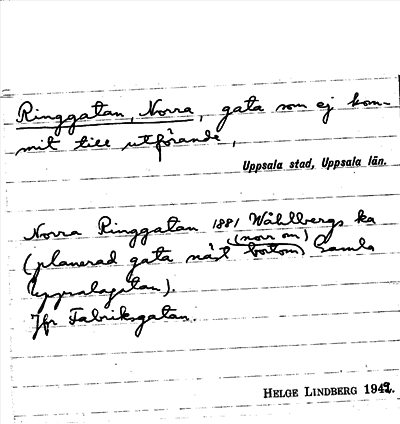 Ringgatan, Norra, gata som ej kom-
mit till utförande,
Uppsala stad, Uppsala län.
Norra Ringgatan 1881 Wåhlbergs ka
(norr om)
(planerad gata näst bortom Gamla
Uppsalagatan).
Jfr Fabriksgatan.
HELGE LINDBERG 1942.